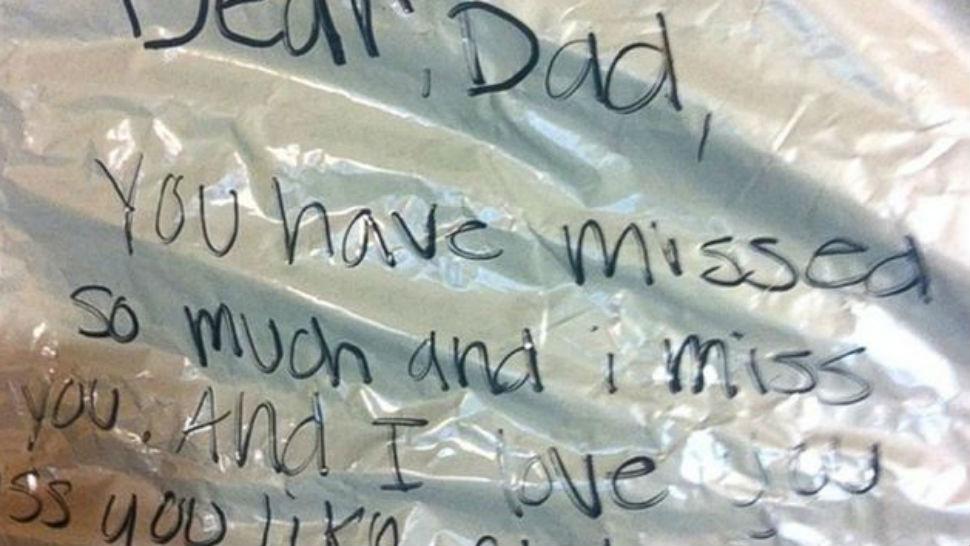 Dear, Dad,
You have missed
so much and i miss
you. And I love you
ss you like